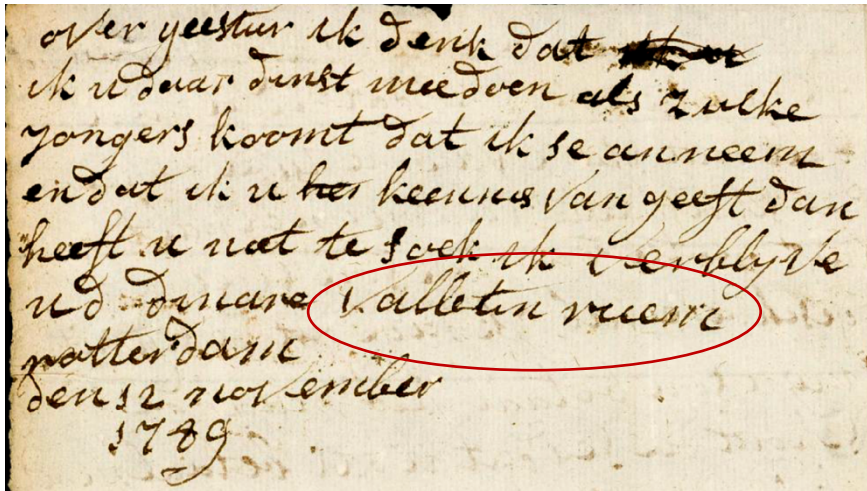 over geestur ik denk dat
ik u daar dinst meedoen als zulke
yongers koomt dat ik se anneem
en dat ik u keennes van geeft dan
heeft u nat te soek ik verblyve
u d dinare Valletin ruem
rotterdam
den 12 november
1789